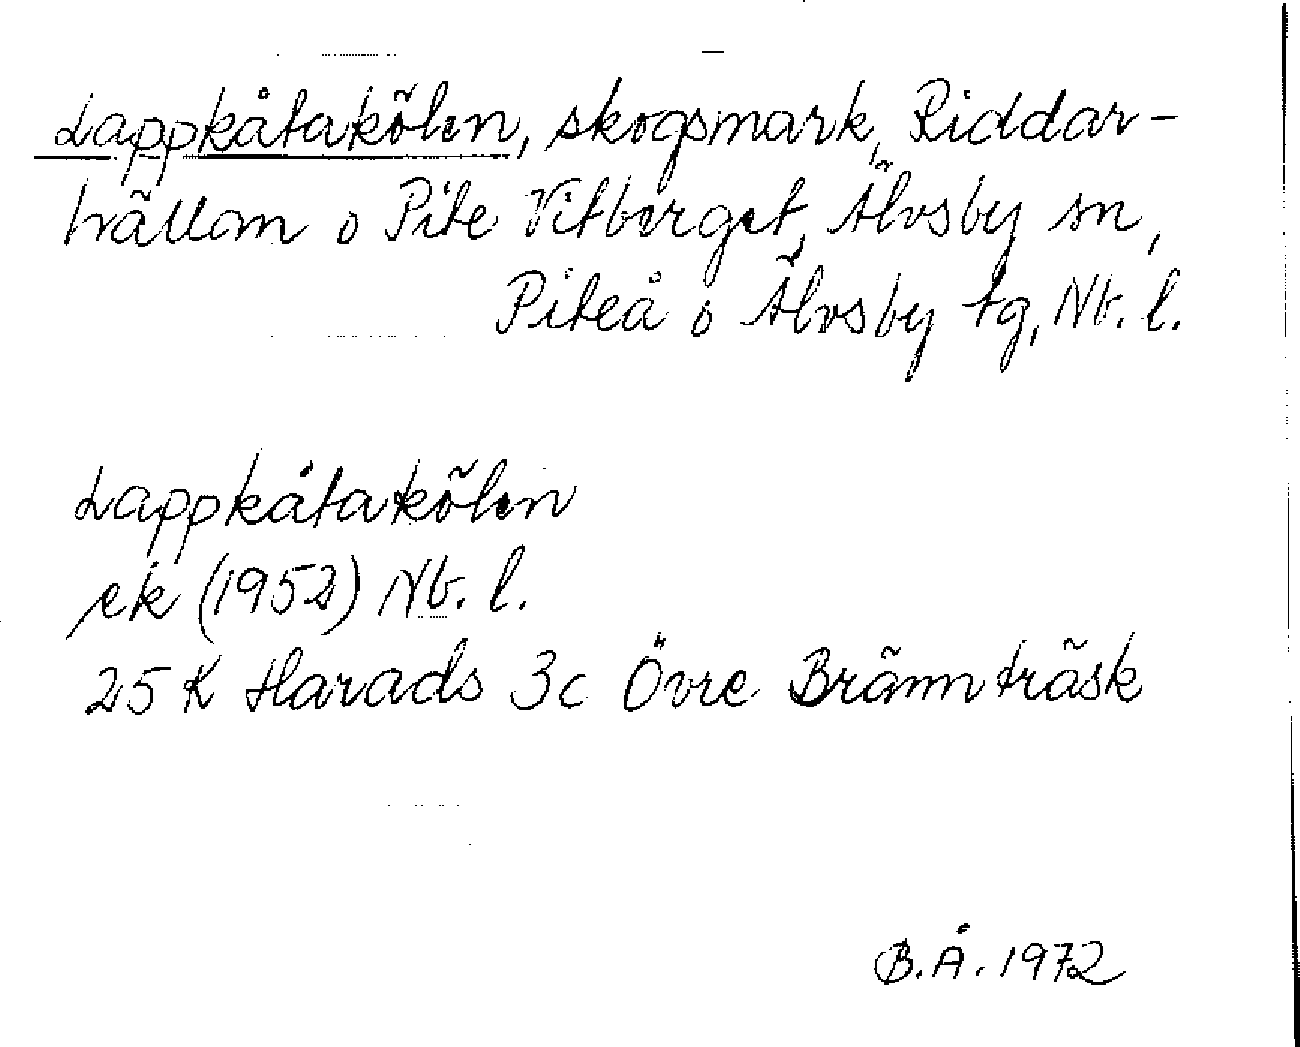 Lappkåtakölen, skogsmark, Riddar-
hällan o Pite Vitberget, Älvsby sn,
Piteå o Älvsby tg, Nb. l.
Lappkåtakölen
ek (1952) Nb. l.
25 K Harads 3c Övre Brännträsk
B.Å. 1972